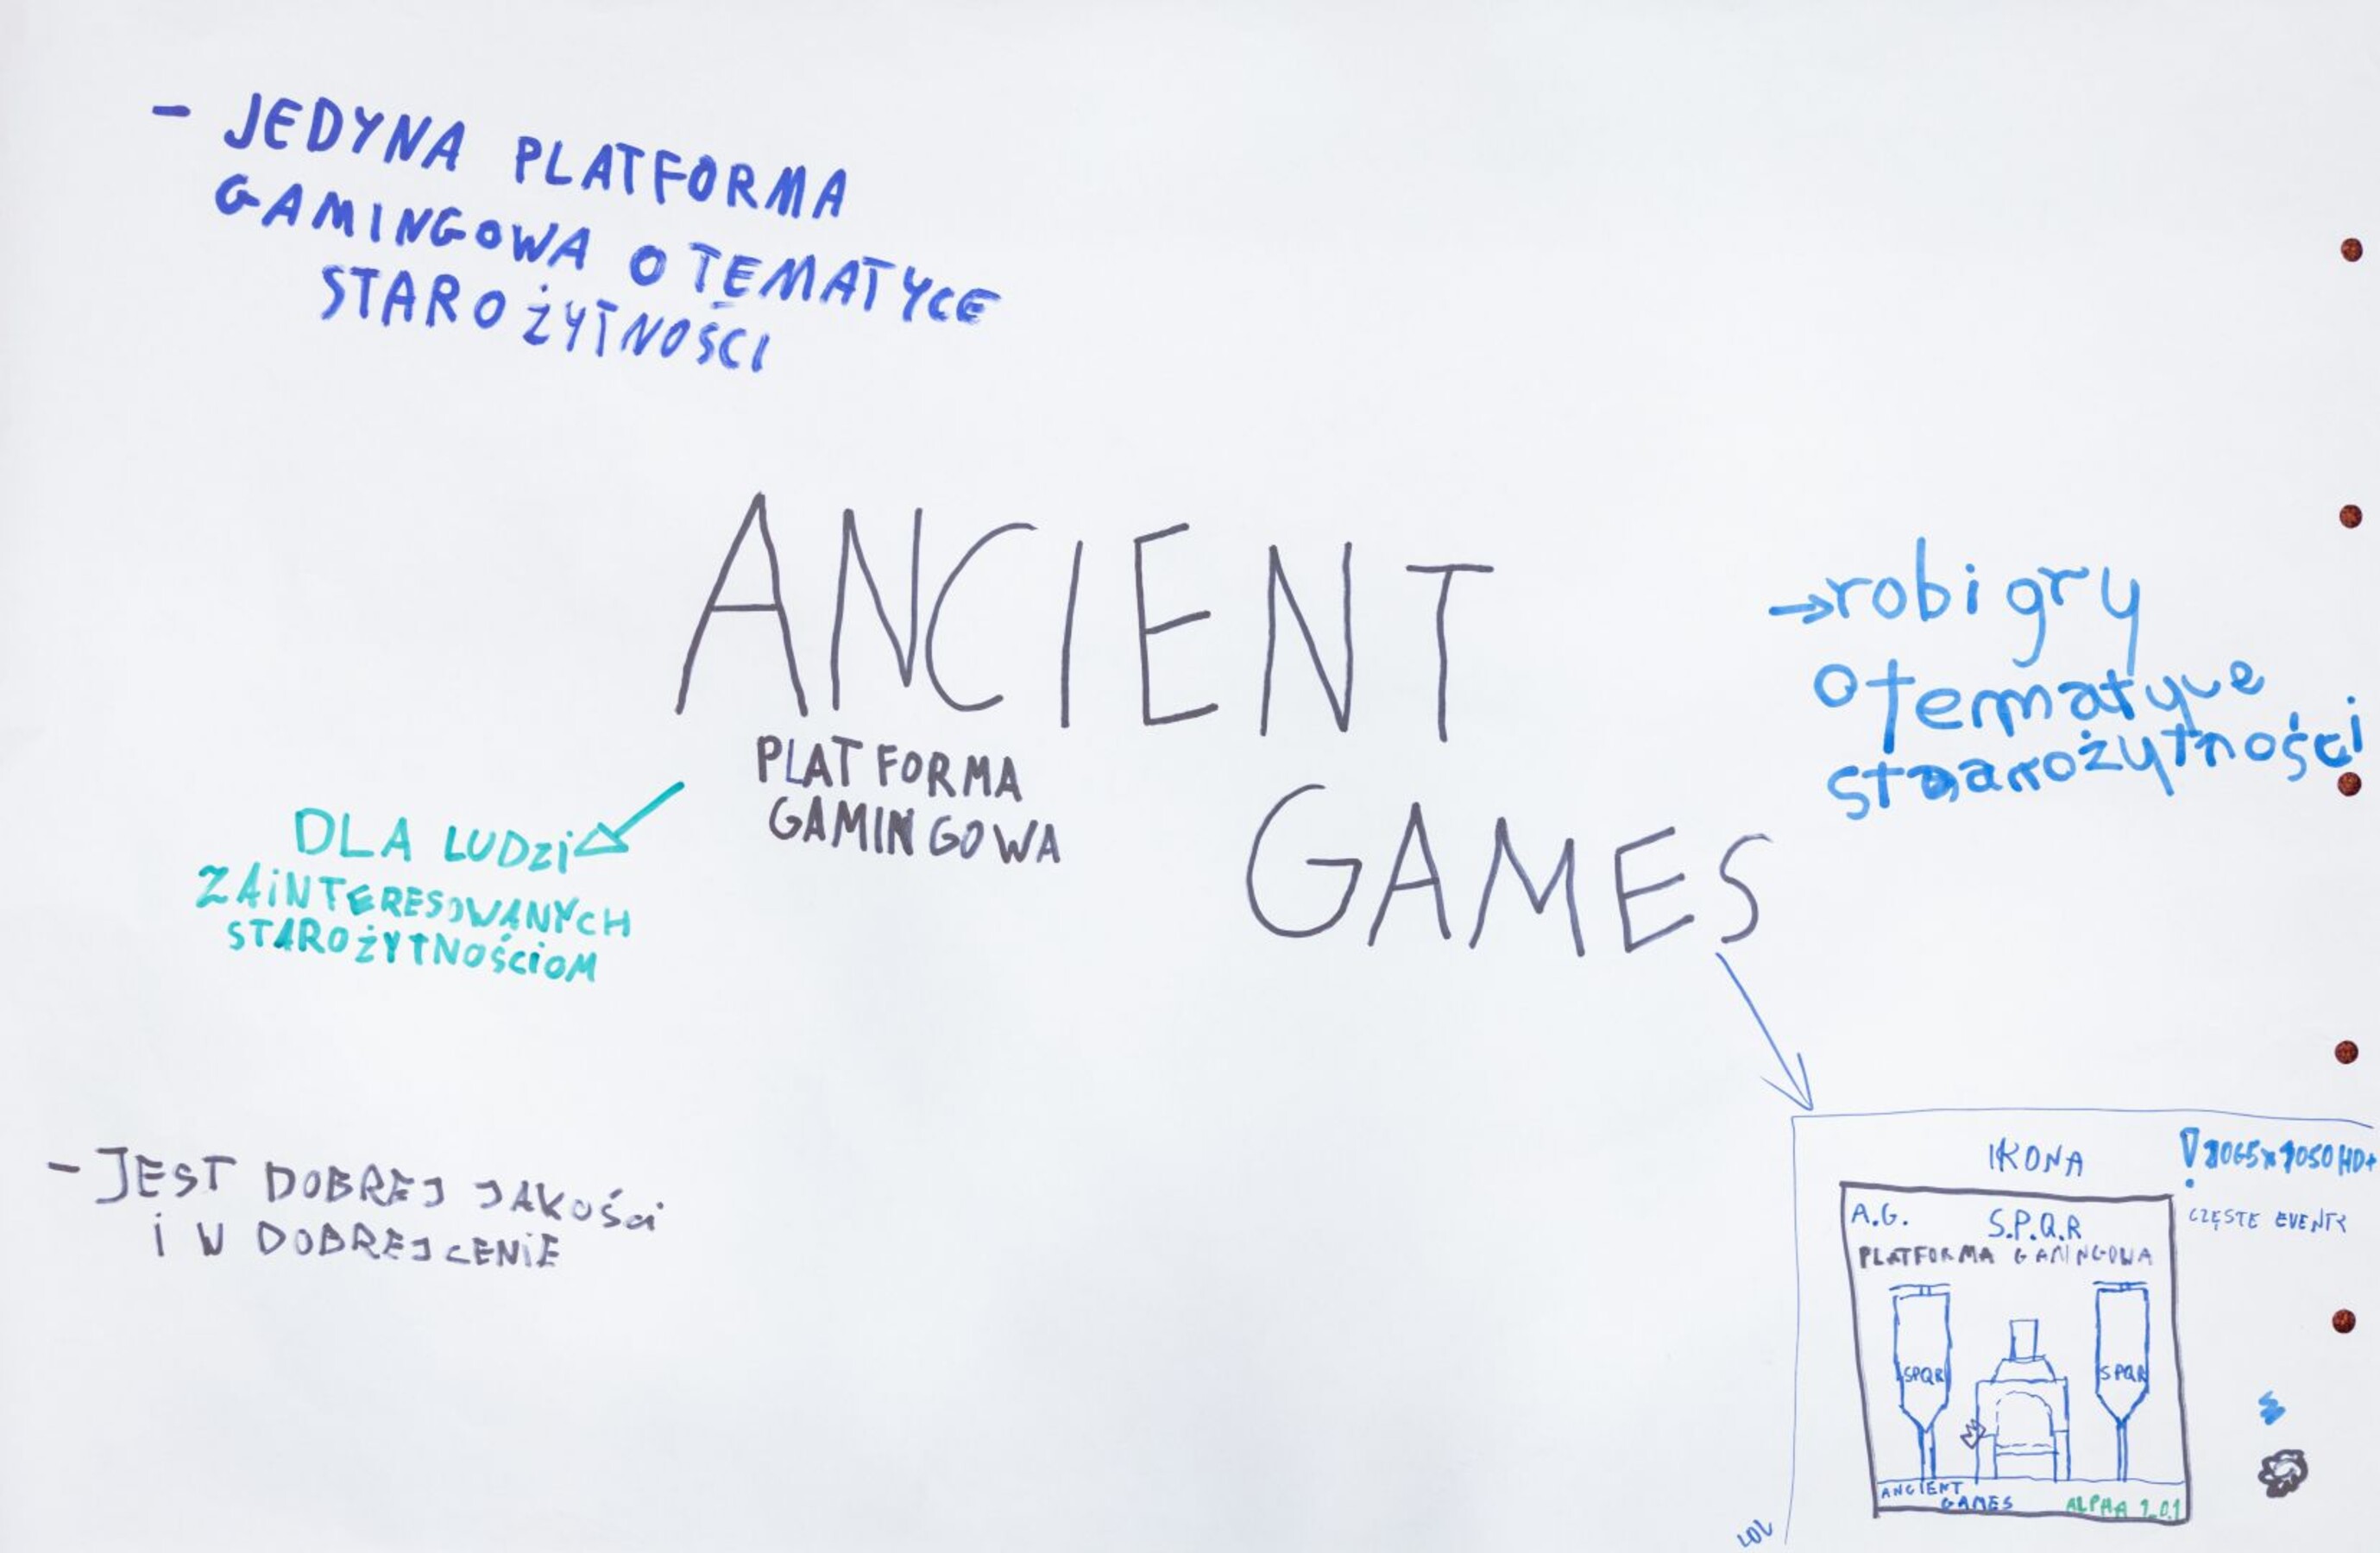 - JEDYNA PLATFORMA
GAMINGOWA O TEMATYCE
STAROŻYTNOŚCI
ANCIENT
GAMES
PLATFORMA
GAMINGOWA
→ robi gry
o tematyce
starożytności
DLA LUDZi
ZAiNTERESOWANYCH
STAROŻYTNOŚCiOM
- JEST DOBREJ JAKOŚci
i W DOBREJ CENiE
IKONA
CZĘSTE EVENTY
A.G. S.P.Q.R
PLATFORMA GAMINGOWA
SPQR SPQR
ANCIENT
GAMES ALPHA 1.0.1
LOL